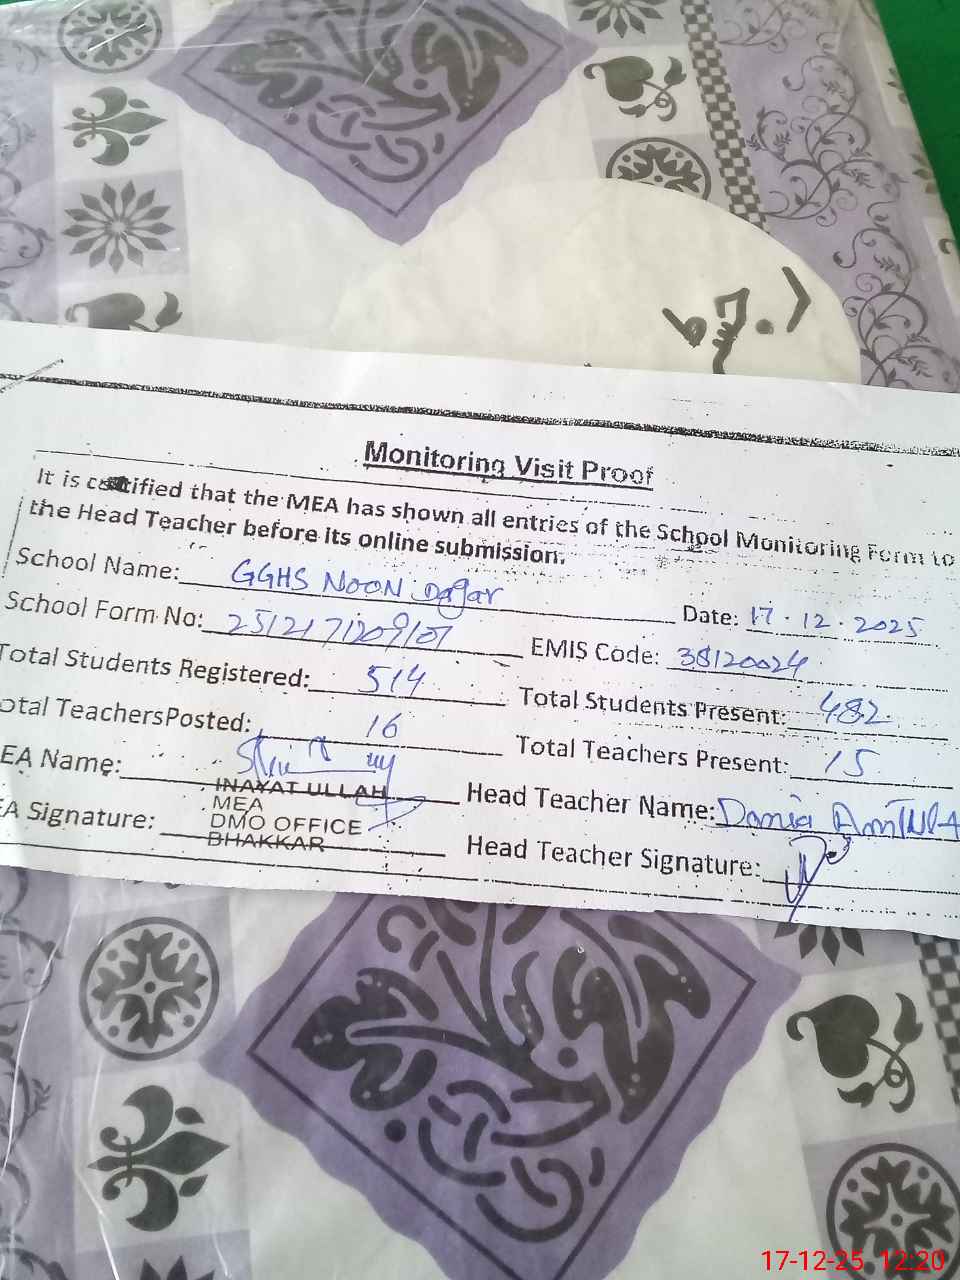 Monitoring Visit Proof
It is certified that the MEA has shown all entries of the School Monitoring Form to
the Head Teacher before its online submission.
School Name: GGHS NOON Dagar Date: 17.12.2025
School Form No: EMIS Code: 38120024
Total Students Registered: 514 Total Students Present: 482
otal TeachersPosted: 16 Total Teachers Present: 15
EA Name: Head Teacher Name: Dania
INAYAT ULLAH
MEA
EA Signature: DMO OFFICE Head Teacher Signature:
BHAKKAR
17-12-25 12:20